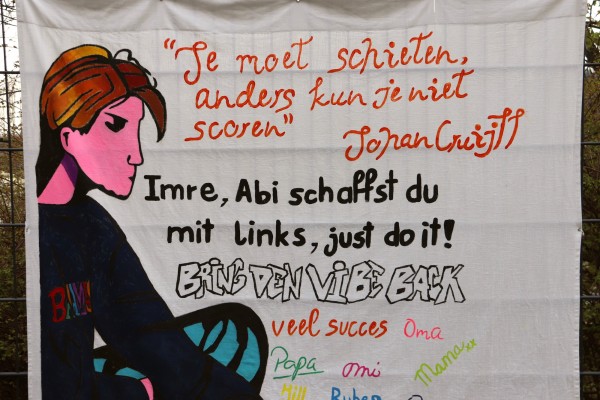 "Je moet schieten,
anders kun je niet
scoren"
Johan Cruijff
Imre, Abi schaffst du
mit links, just do it!
BRING DEN VIBE BACK
veel succes Oma
Papa omi Mamaxx
Mill Ruben